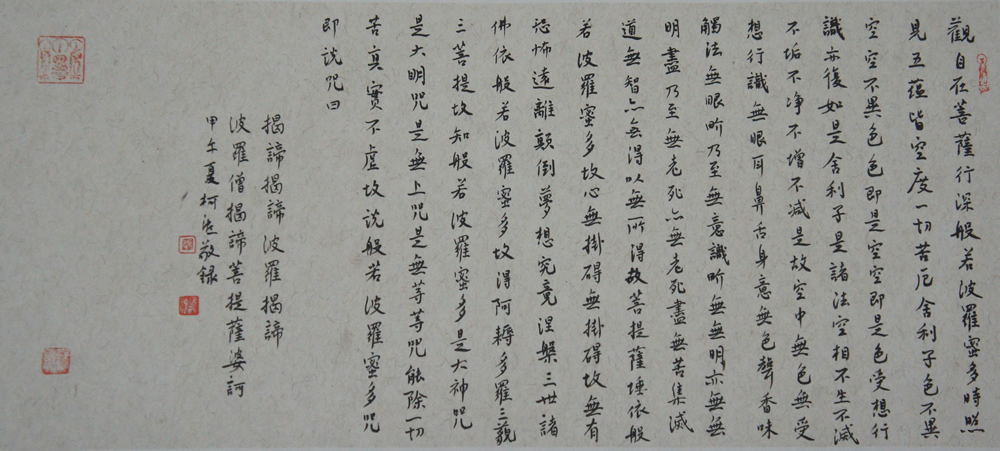 觀自在菩薩行深般若波羅蜜多時照
見五蘊皆空度一切苦厄舍利子色不異
空空不異色色即是空空即是色受想行
識亦復如是舍利子是諸法空相不生不滅
不垢不净不增不减是故空中無色無受
想行識無眼耳鼻舌身意無色聲香味
觸法無眼界乃至無意識界無無明亦無無
明盡乃至無老死亦無老死盡無苦集滅
道無智亦無得以無所得故菩提薩埵依般
若波羅蜜多故心無掛碍無掛碍故無有
恐怖遠離顛倒夢想究竟涅槃三世諸
佛依般若波羅蜜多故得阿耨多羅三藐
三菩提故知般若波羅蜜多是大神咒
是大明咒是無上咒是無等等咒能除一切
苦真實不虛故説般若波羅蜜多咒
即説咒曰
揭諦揭諦波羅揭諦
波羅僧揭諦菩提薩婆訶
甲午夏柯敬録